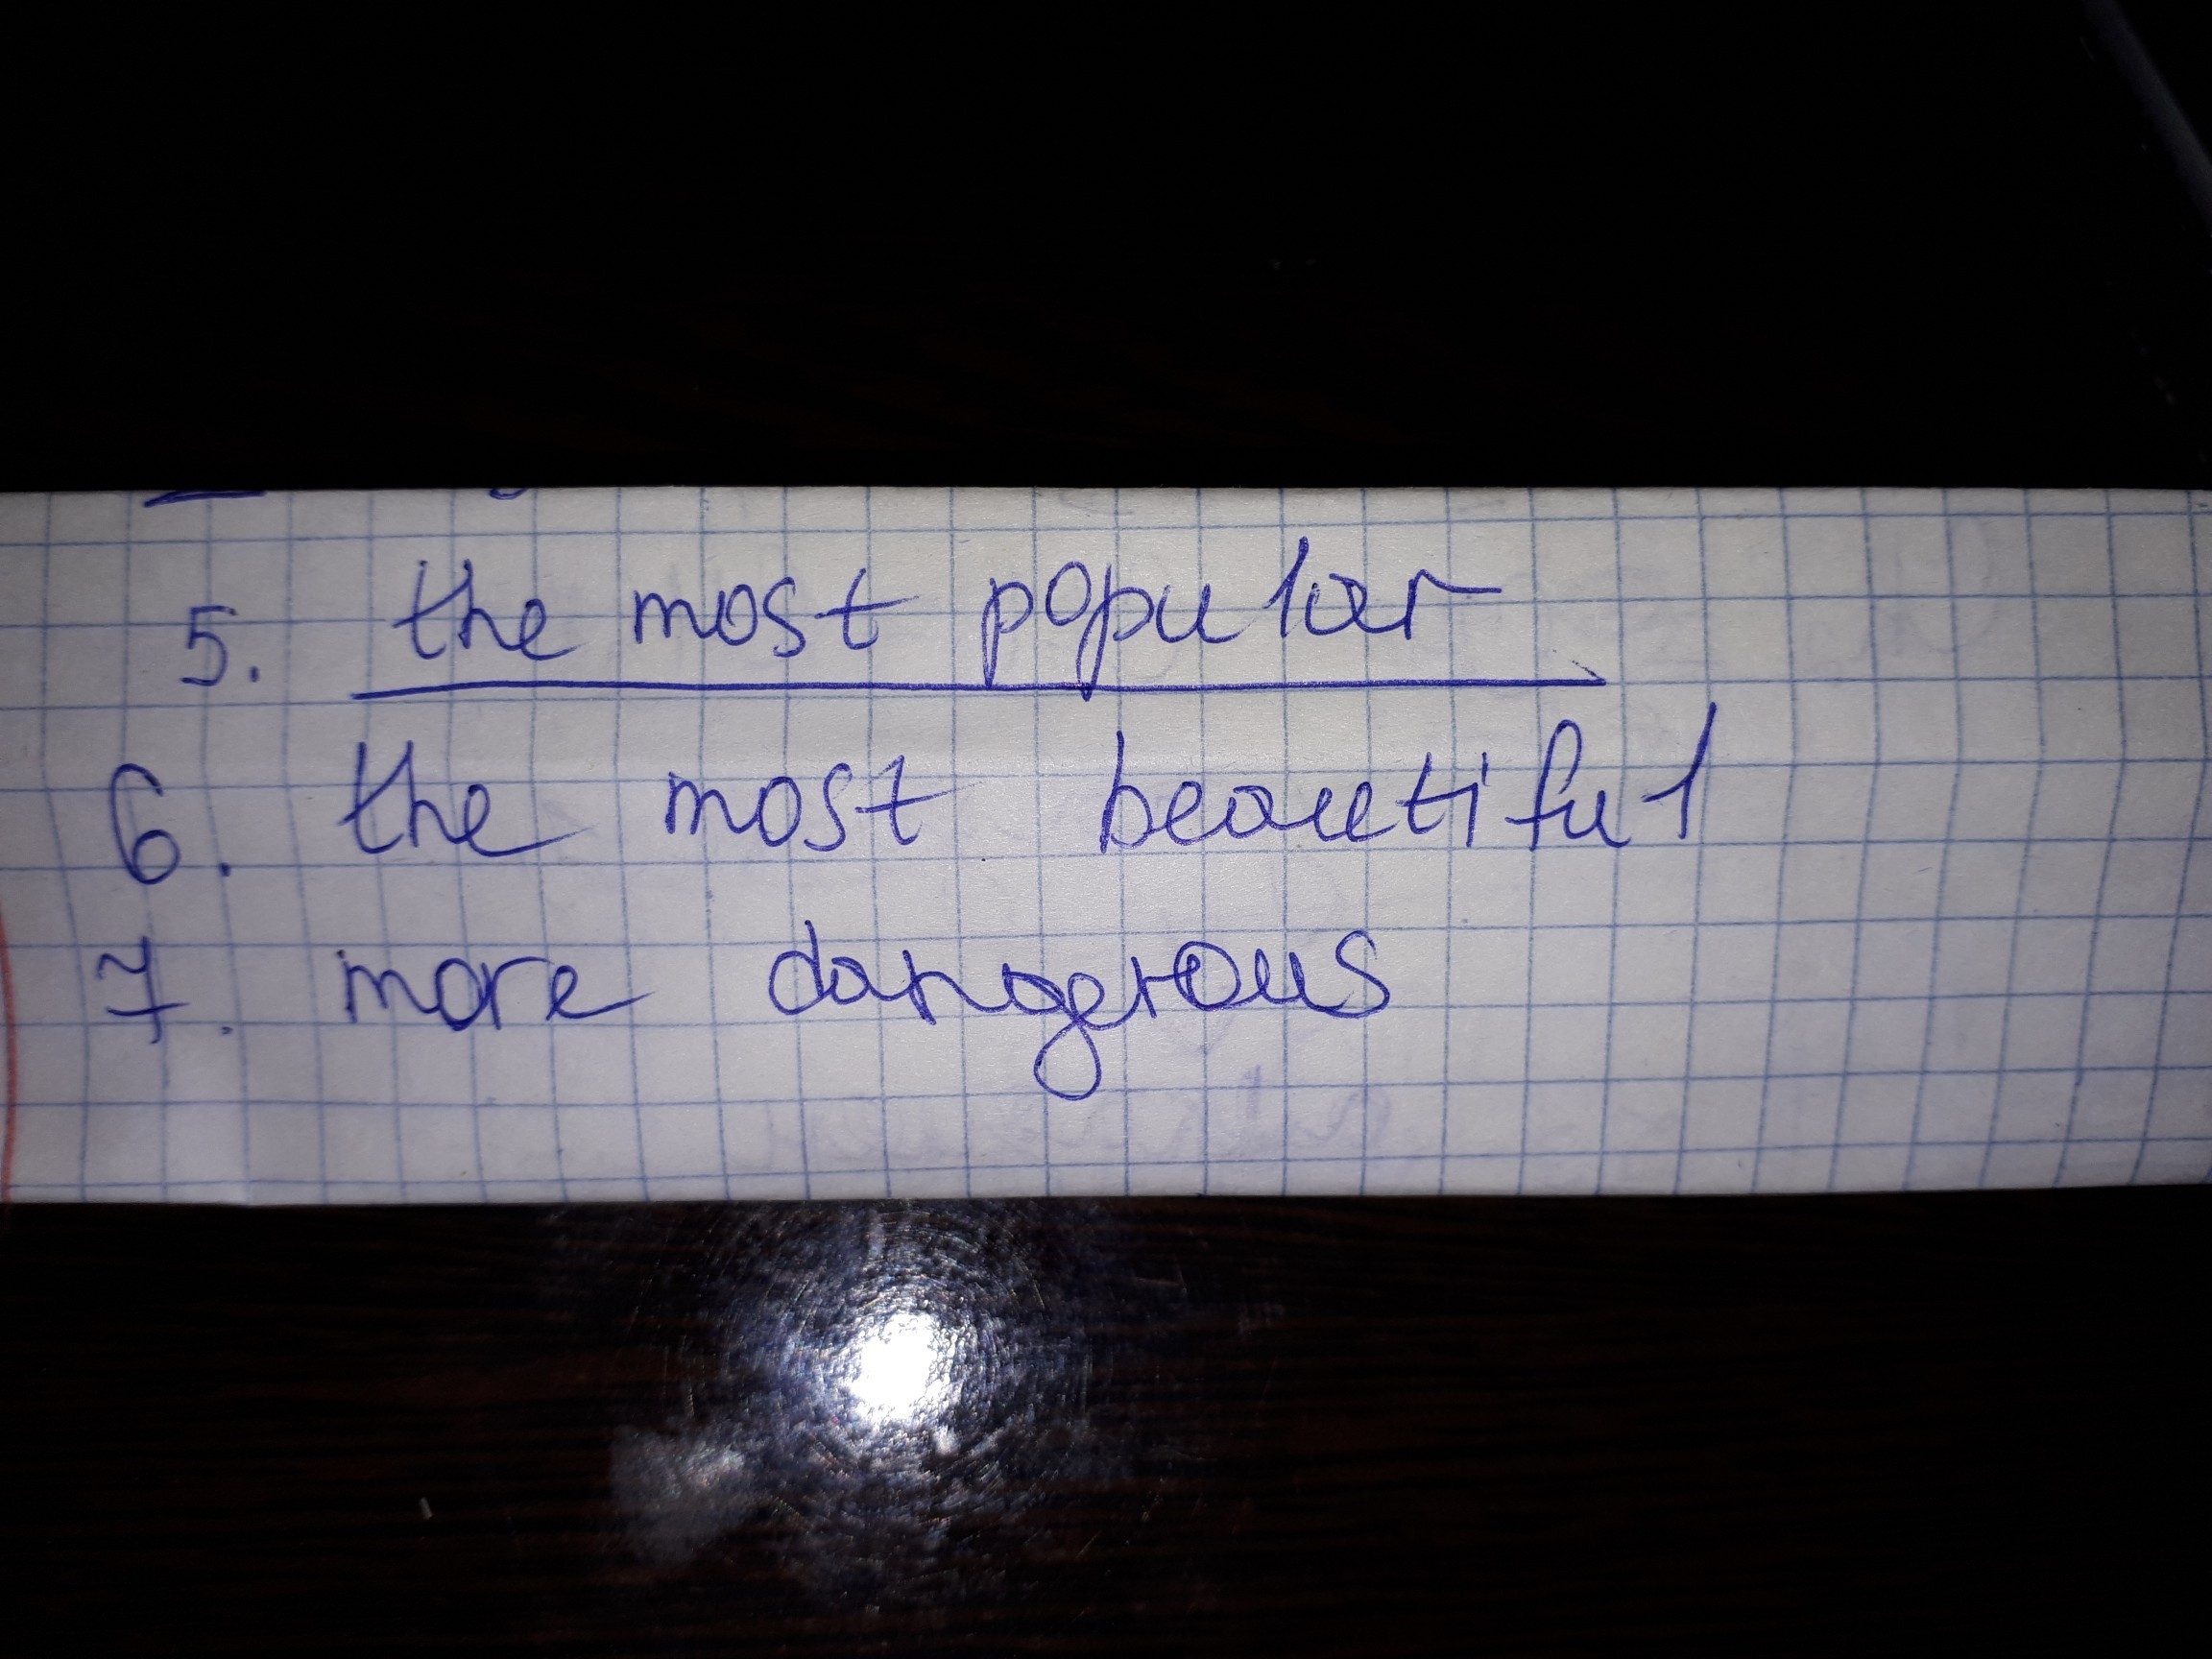 5. the most popular
6. the most beautiful
7. more dangerous